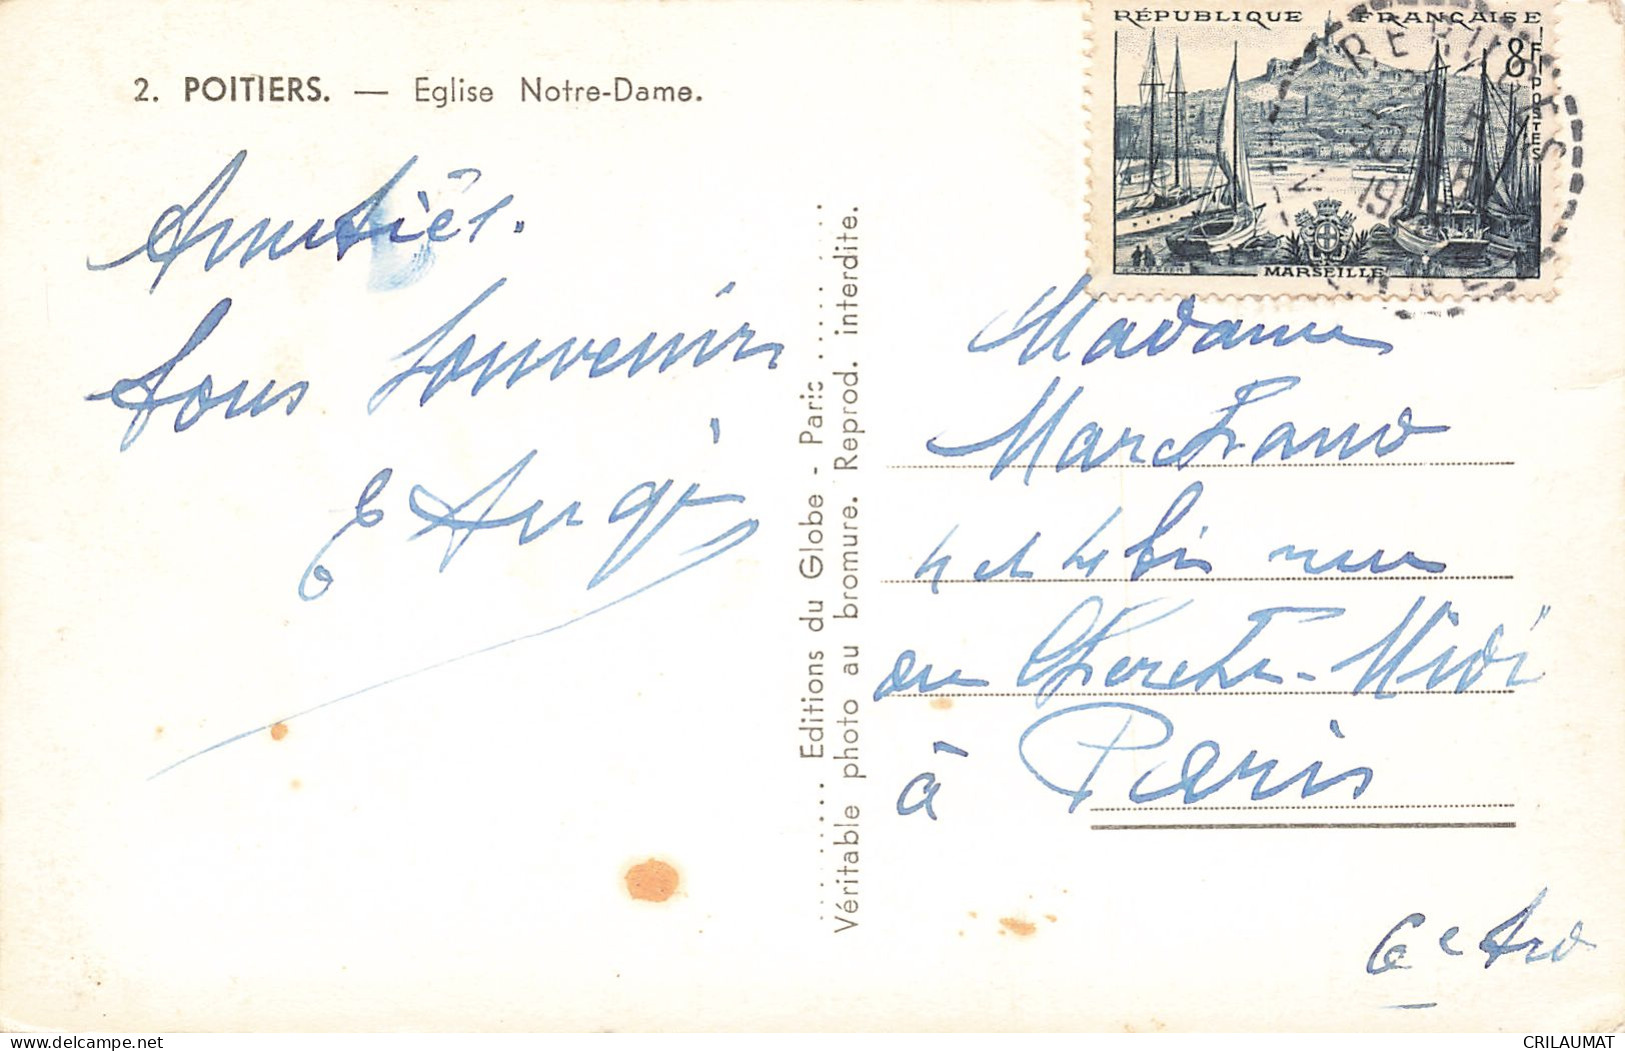 2. POITIERS. — Eglise Notre-Dame.
Amitiés.
bons souvenirs
RÉPUBLIQUE FRANÇAISE
8F
POSTES
MARSEILLE
19
Editions du Globe - Paris
Véritable photo au bromure. Reprod. interdite.
Madame
Marchand
4 et 4 bis rue
du Cherche-Midi
à Paris
6e Ard
CRILAUMAT